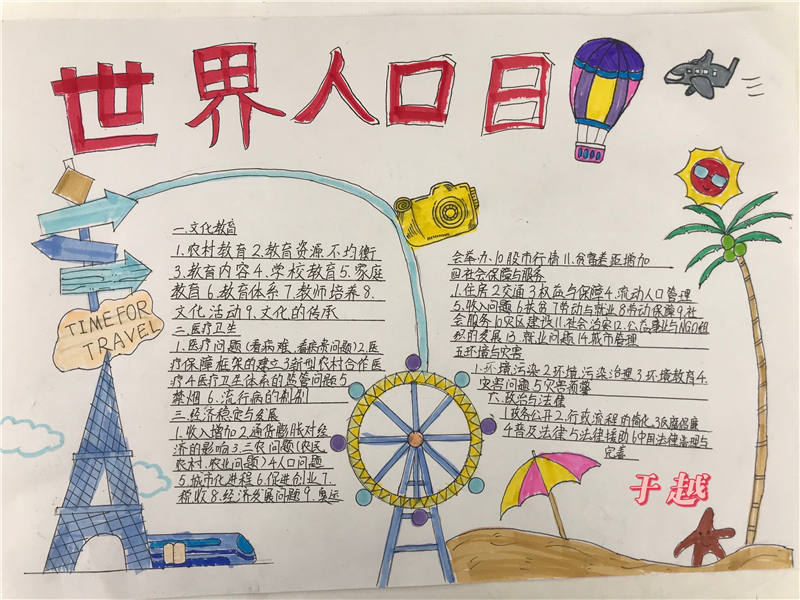 世界人口日
TIME FOR
TRAVEL
一.文化教育
1.农村教育2.教育资源不均衡
3.教育内容4.学校教育5.家庭
教育6.教育体系7.教师培养8.
文化活动9.文化的传承
二.医疗卫生
1.医疗问题(看病难、看病贵问题)2.医
疗保障框架的建立3.新型农村合作医
疗4.医疗卫生体系的监管问题5
禁烟6.流行病的制制
三.经济稳定与发展
1.收入增加2.通货膨胀对经
济的影响3.三农问题(农民
农村、农业问题)4人口问题
5.城市化进程6.促进创业7.
税收8.经济发展问题9.奥运
会举办、10股市行情11.贫富差距增加
四社会保障与服务
1.住房2交通3权益与保障4.流动人口管理
5.收入问题6扶贫7劳动与就业8劳动保障9.社
会服务10灾区建设11.社会治安12.公益事业与NGO组
织的发展13.就业问题14.城市管理
五环境与灾害
1.环境污染2环境污染治理3环境教育4.
灾害问题5灾害预警
六.政治与法律
1政务公开2行政流程的简化3反腐倡廉
4普及法律5法律援助6中国法律治理与
完善
于越